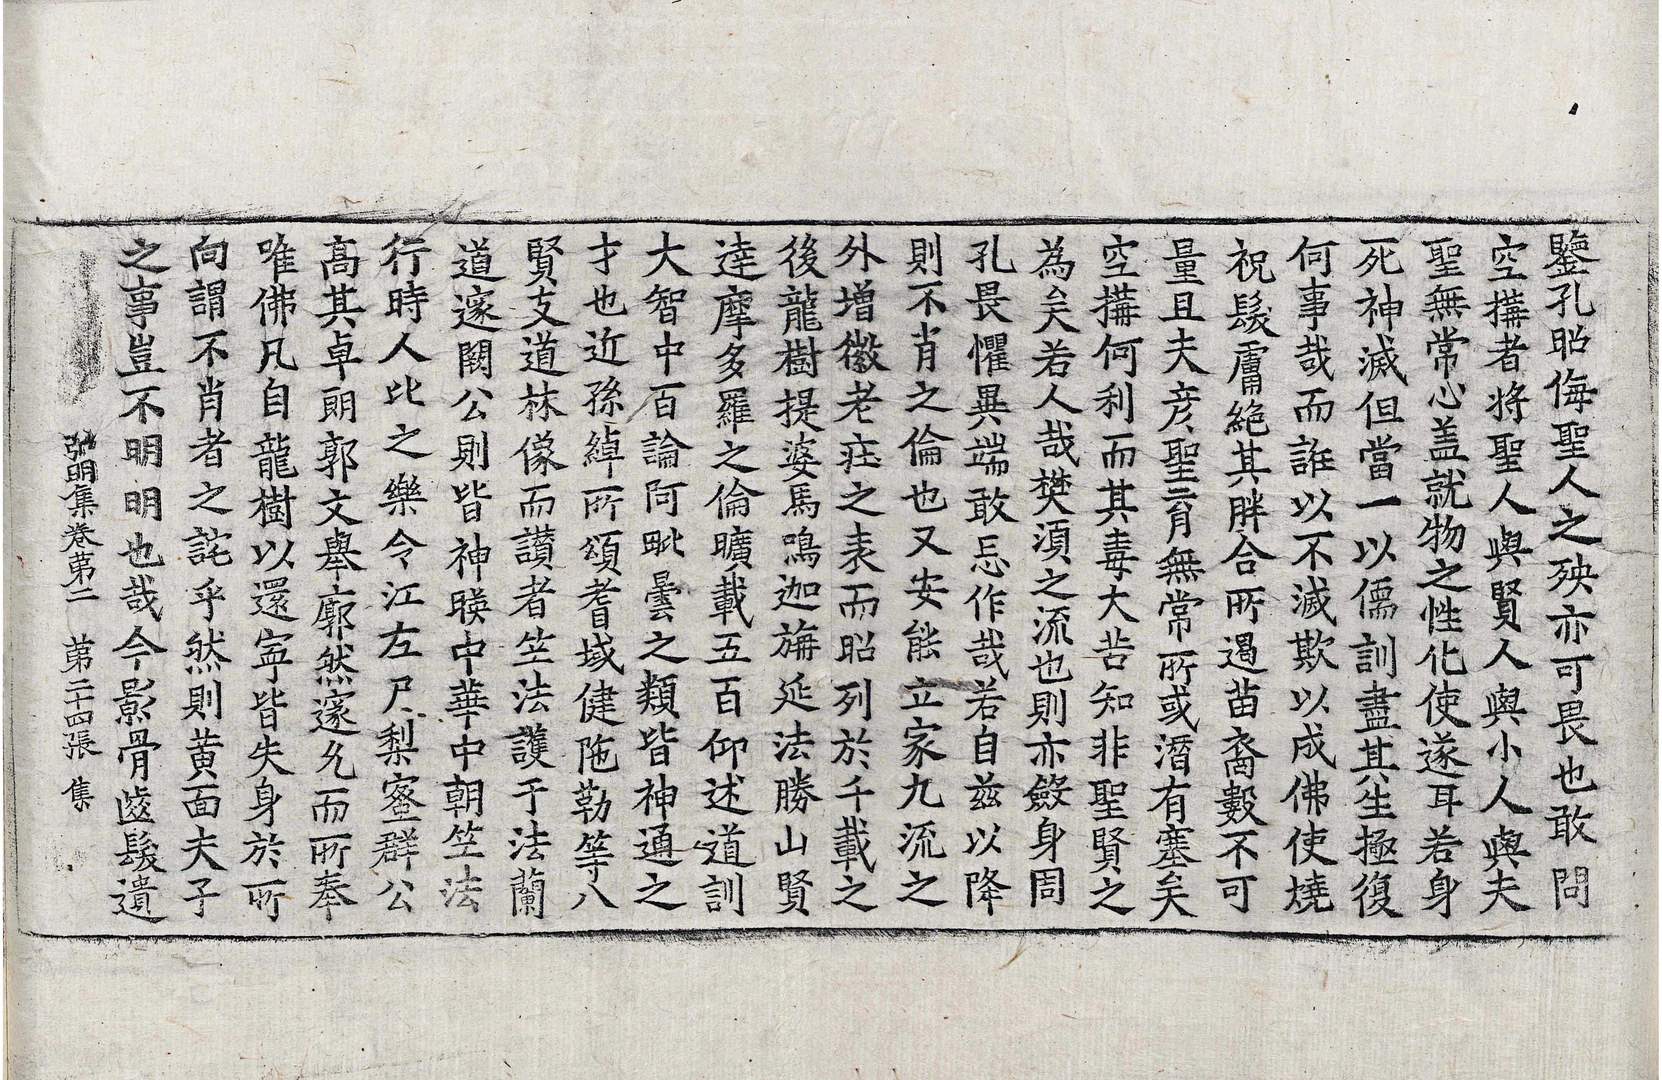 鑒孔昭侮聖人之殃亦可畏也敢問
空搆者將聖人與賢人與小人與夫
聖無常心盖就物之性化使遂耳若身
死神滅但當一以儒訓盡其生極復
何事哉而誑以不滅欺以成佛使燒
祝髮膚絶其胖合所遏苗裔數不可
量且夫彦聖育無常所或潛有塞矣
空搆何利而其毒大苦知非聖賢之
為矣若人哉樊湏之流也則亦斂身周
孔畏懼異端敢忘作哉若自兹以降
則不肖之倫也又安能立家九流之
外增徽老莊之表而昭列於千載之
後龍樹提婆馬鳴迦旃延法勝山賢
逹摩多羅之倫曠載五百仰述道訓
大智中百論阿毗曇之類皆神通之
才也近孫綽所頌耆域健陁勒等八
賢支道林像而讃者竺法護于法蘭
道邃闕公則皆神暎中華中朝竺法
行時人比之樂令江左尸梨蜜群公
高其卓朗郭文舉廓然邃允而所奉
唯佛凡自龍樹以還寧皆失身於所
向謂不肖者之詫乎然則黄面夫子
之事豈不明明也哉今影骨齒髮遺
弘明集卷第二　第二十四張　集